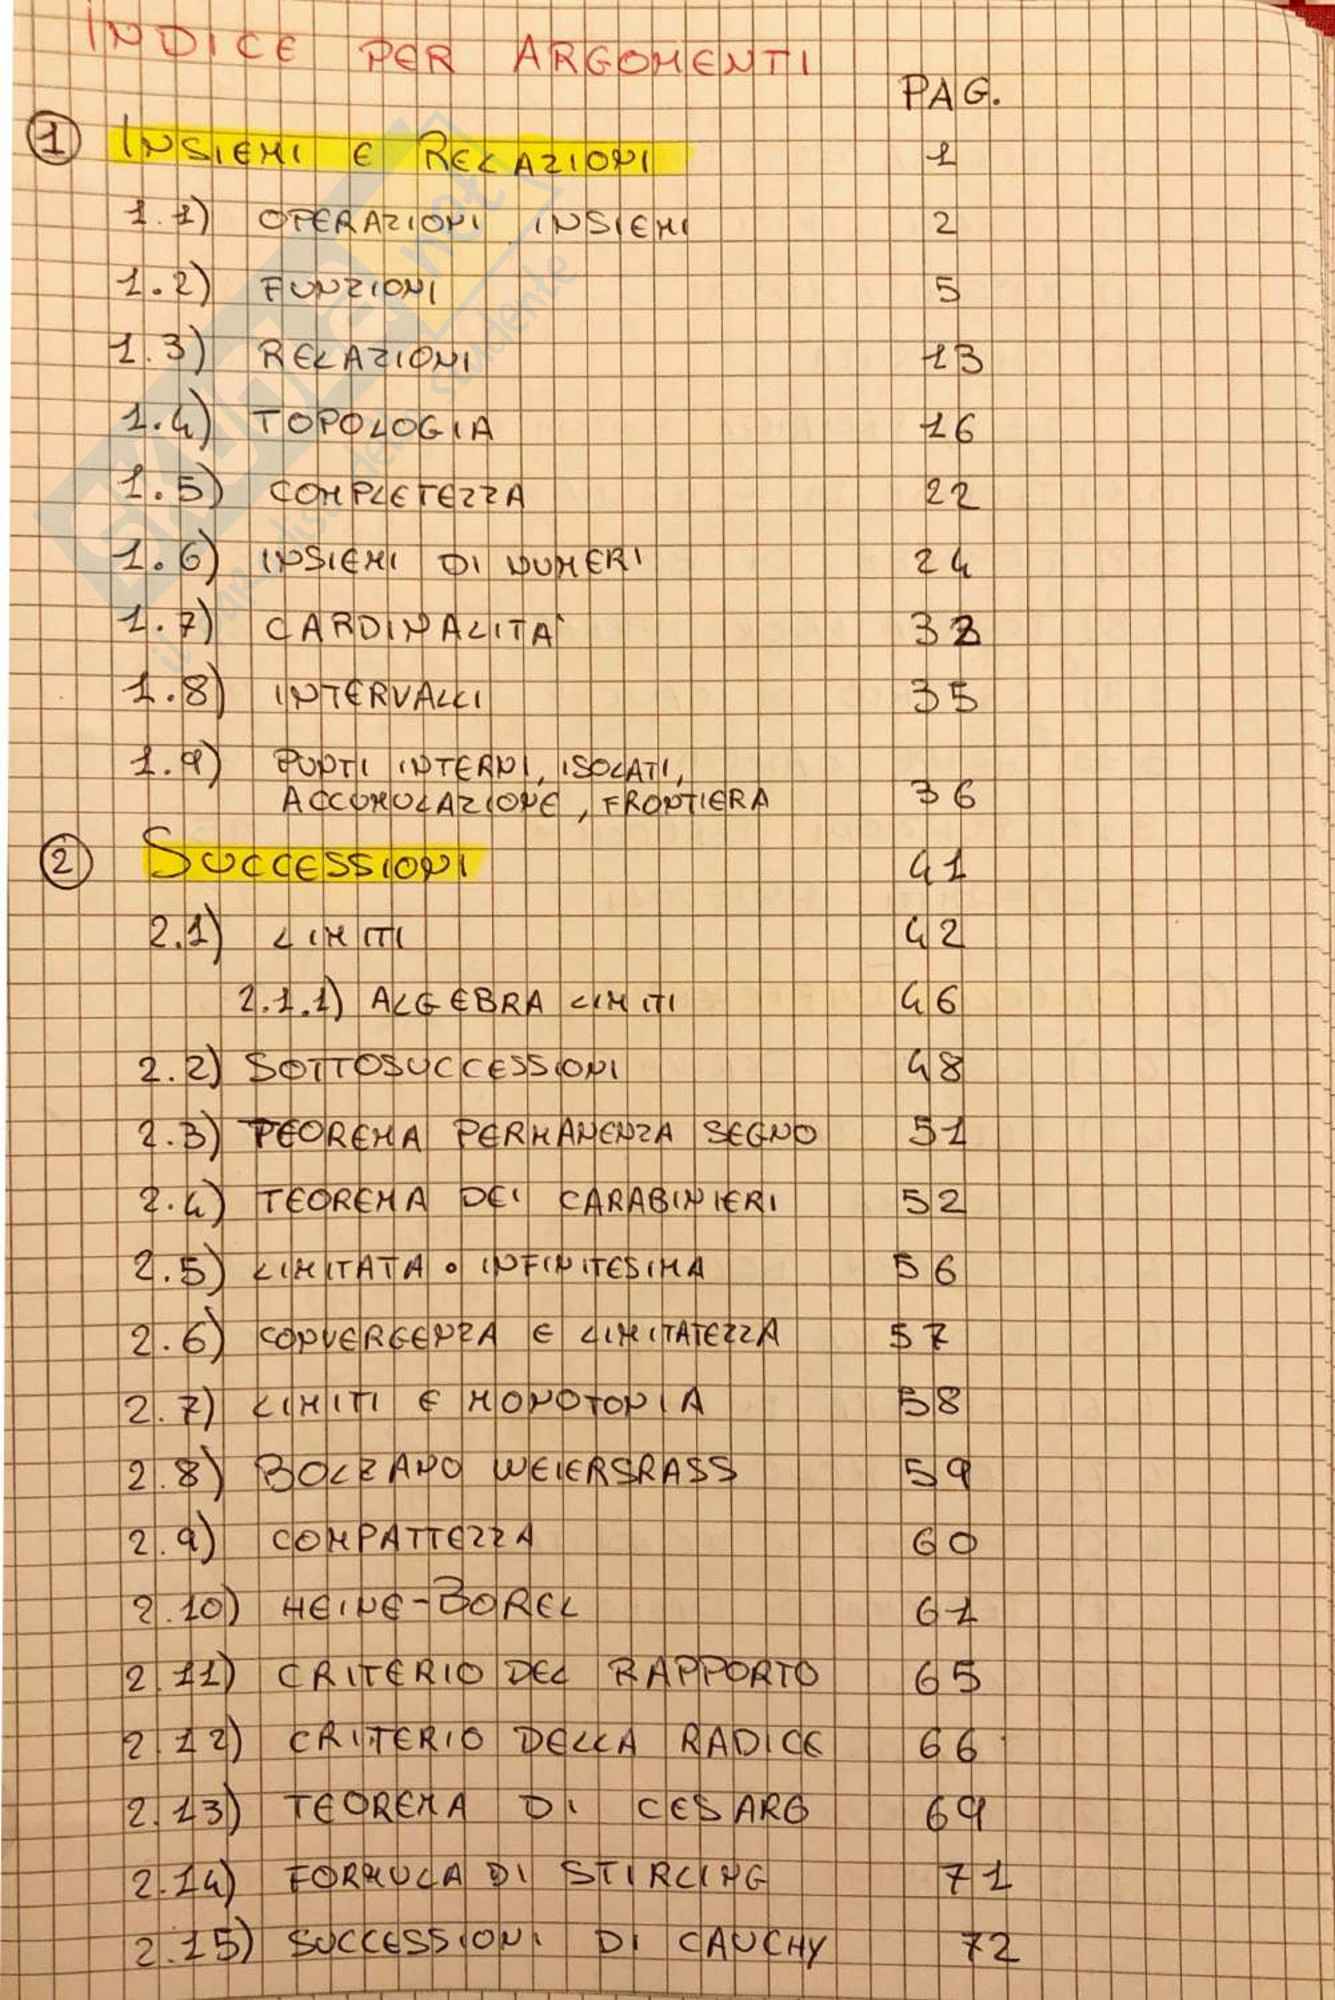 INDICE PER ARGOMENTI
PAG.
1 INSIEMI E RELAZIONI 1
1.1) OPERAZIONI INSIEMI 2
1.2) FUNZIONI 5
1.3) RELAZIONI 13
1.4) TOPOLOGIA 16
1.5) COMPLETEZZA 22
1.6) INSIEMI DI NUMERI 24
1.7) CARDINALITA' 32
1.8) INTERVALLI 35
1.9) PUNTI INTERNI, ISOLATI,
ACCOMULAZIONE, FRONTIERA 36
2 SUCCESSIONI 41
2.1) LIMITI 42
2.1.1) ALGEBRA LIMITI 46
2.2) SOTTOSUCCESSIONI 48
2.3) TEOREMA PERMANENZA SEGNO 51
2.4) TEOREMA DEI CARABINIERI 52
2.5) LIMITATA • INFINITESIMA 56
2.6) CONVERGENZA E LIMITATEZZA 57
2.7) LIMITI E MONOTONIA 58
2.8) BOLZANO WEIERSRASS 59
2.9) COMPATTEZZA 60
2.10) HEINE-BOREL 61
2.11) CRITERIO DEL RAPPORTO 65
2.12) CRITERIO DELLA RADICE 66
2.13) TEOREMA DI CESARO 69
2.14) FORMULA DI STIRLING 71
2.15) SUCCESSIONI DI CAUCHY 72